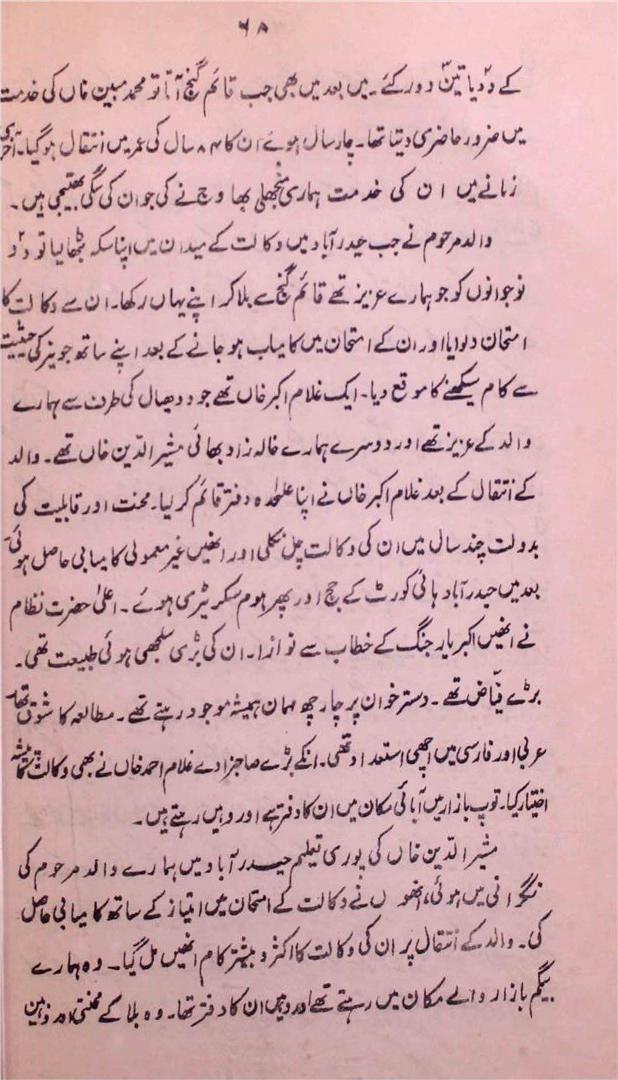 ۶۸
کے دو یا تین دور کئے۔ میں بعد میں بھی جب قائم گنج آتا تو محمد مبین خاں کی خدمت
میں ضرور حاضری دیتا تھا۔ چار سال ہوئے ان کا ۸۴ سال کی عمر میں انتقال ہوگیا۔ آخری
زمانے میں ان کی خدمت ہماری منجھلی بھاوج نے کی جو ان کی سگی بھتیجی ہیں۔
والد مرحوم نے جب حیدرآباد میں وکالت کے میدان میں اپنا سکہ بٹھا لیا تو دو
نوجوانوں کو جو ہمارے عزیز تھے قائم گنج سے بلا کر اپنے یہاں رکھا۔ ان سے وکالت کا
امتحان دلوایا اور ان کے امتحان میں کامیاب ہو جانے کے بعد اپنے ساتھ جونیر کی حیثیت
سے کام سیکھنے کا موقع دیا۔ ایک غلام اکبر خاں تھے جو ددھیال کی طرف سے ہمارے
والد کے عزیز تھے اور دوسرے ہمارے خالہ زاد بھائی مشیر الدّین خاں تھے۔ والد
کے انتقال کے بعد غلام اکبر خاں نے اپنا علٰحدہ دفتر قائم کر لیا۔ محنت اور قابلیت کی
بدولت چند سال میں ان کی وکالت چل نکلی اور انھیں غیر معمولی کامیابی حاصل ہوئی۔
بعد میں حیدرآباد ہائی کورٹ کے جج اور پھر ہوم سکریٹری ہوئے۔ اعلیٰ حضرت نظام
نے انھیں اکبر یار جنگ کے خطاب سے نوازا۔ ان کی بڑی سلجھی ہوئی طبیعت تھی۔
بڑے فیّاض تھے۔ دسترخوان پر چار چھ مہمان ہمیشہ موجود رہتے تھے۔ مطالعہ کا شوق تھا۔
عربی اور فارسی میں اچھی استعداد تھی۔ انکے بڑے صاحبزادے غلام احمد خاں نے بھی وکالت کا پیشہ
اختیار کیا۔ توپ بازار میں آبائی مکان میں ان کا دفتر ہے اور وہیں رہتے ہیں۔
مشیر الدّین خاں کی پوری تعلیم حیدرآباد میں ہمارے والد مرحوم کی
نگرانی میں ہوئی، انھوں نے وکالت کے امتحان میں امتیاز کے ساتھ کامیابی حاصل
کی۔ والد کے انتقال پر ان کی وکالت کا اکثر و بیشتر کام انھیں مل گیا۔ وہ ہمارے
بیگم بازار والے مکان میں رہتے تھے اور وہیں ان کا دفتر تھا۔ وہ بلا کے محنتی اور ذہین